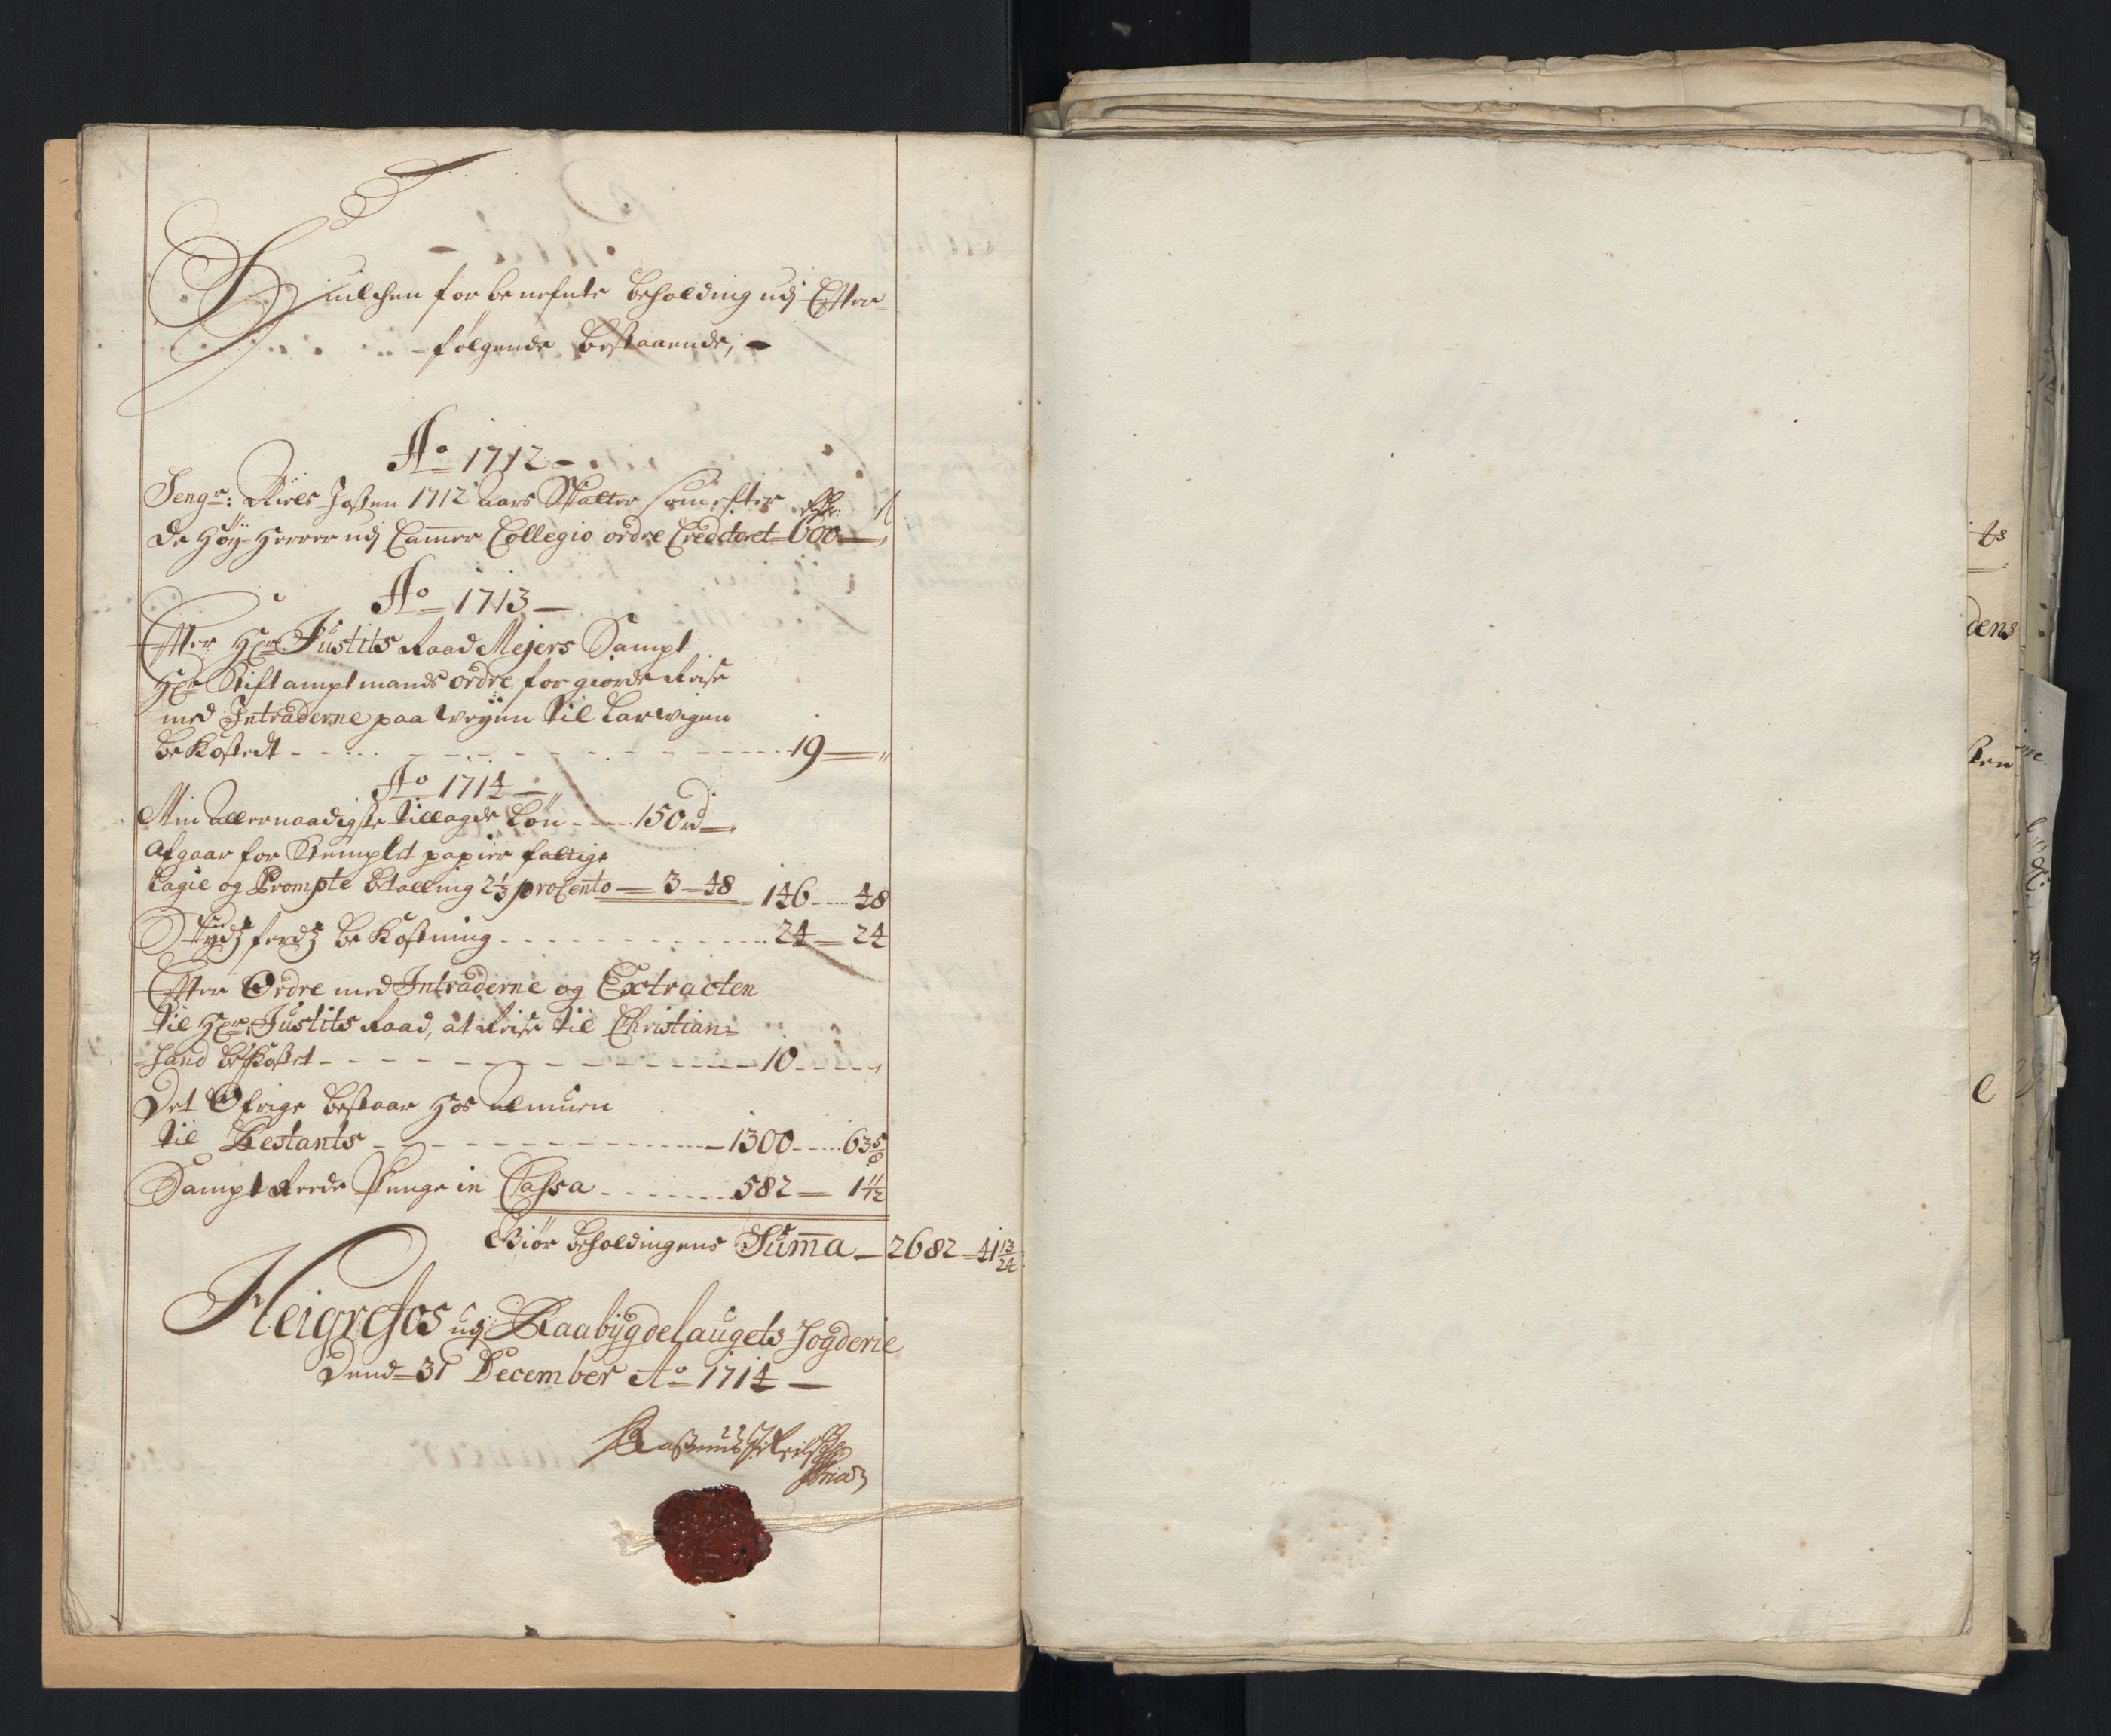 Huilchen forbenefnte beholding udj Efter-
følgende bestaaende;
Ao 1712
Sengr: Niels Josten 1712 aars Skatter som efter Rdr: ß
de Høy-Herrer udj Cammer Collegio ordre Credeteret 600 —
Ao 1713 —
Efter Hr: Justits Raad Mejers Sampt
Hr Stiftamptmands ordre for giorde Reise
med Intraderne paa Veyen til Larwigen
bekosted - - - 19 — "
Ao 1714 —
Min allernaadigste tillagde Løn - - - 150 rd —
Afgaar for Stemplet papir
lagie og Prompte betalling 2⅓ procento — 3 — 48 146 - - 48
bekostning - - - 24 — 24
Efter Ordre med Intraderne og Extracten
til Hr: Justits Raad, at Reise til Christian=
=sand bekostet - - - 10 - - -
Det Øfrige bestaar hos almuen
til Restants - - - 1300 - - 63 5/8
Sampt Rede Penge in Cassa - - - 582 — 1 11/12
Giør beholdingens Summa — 2682 — 41 13/24
Heigrefos udj Raabygdelaugets Fogderie
Dend 31 December Ao 1714 —
Rasmus
ts
dens
ten
e